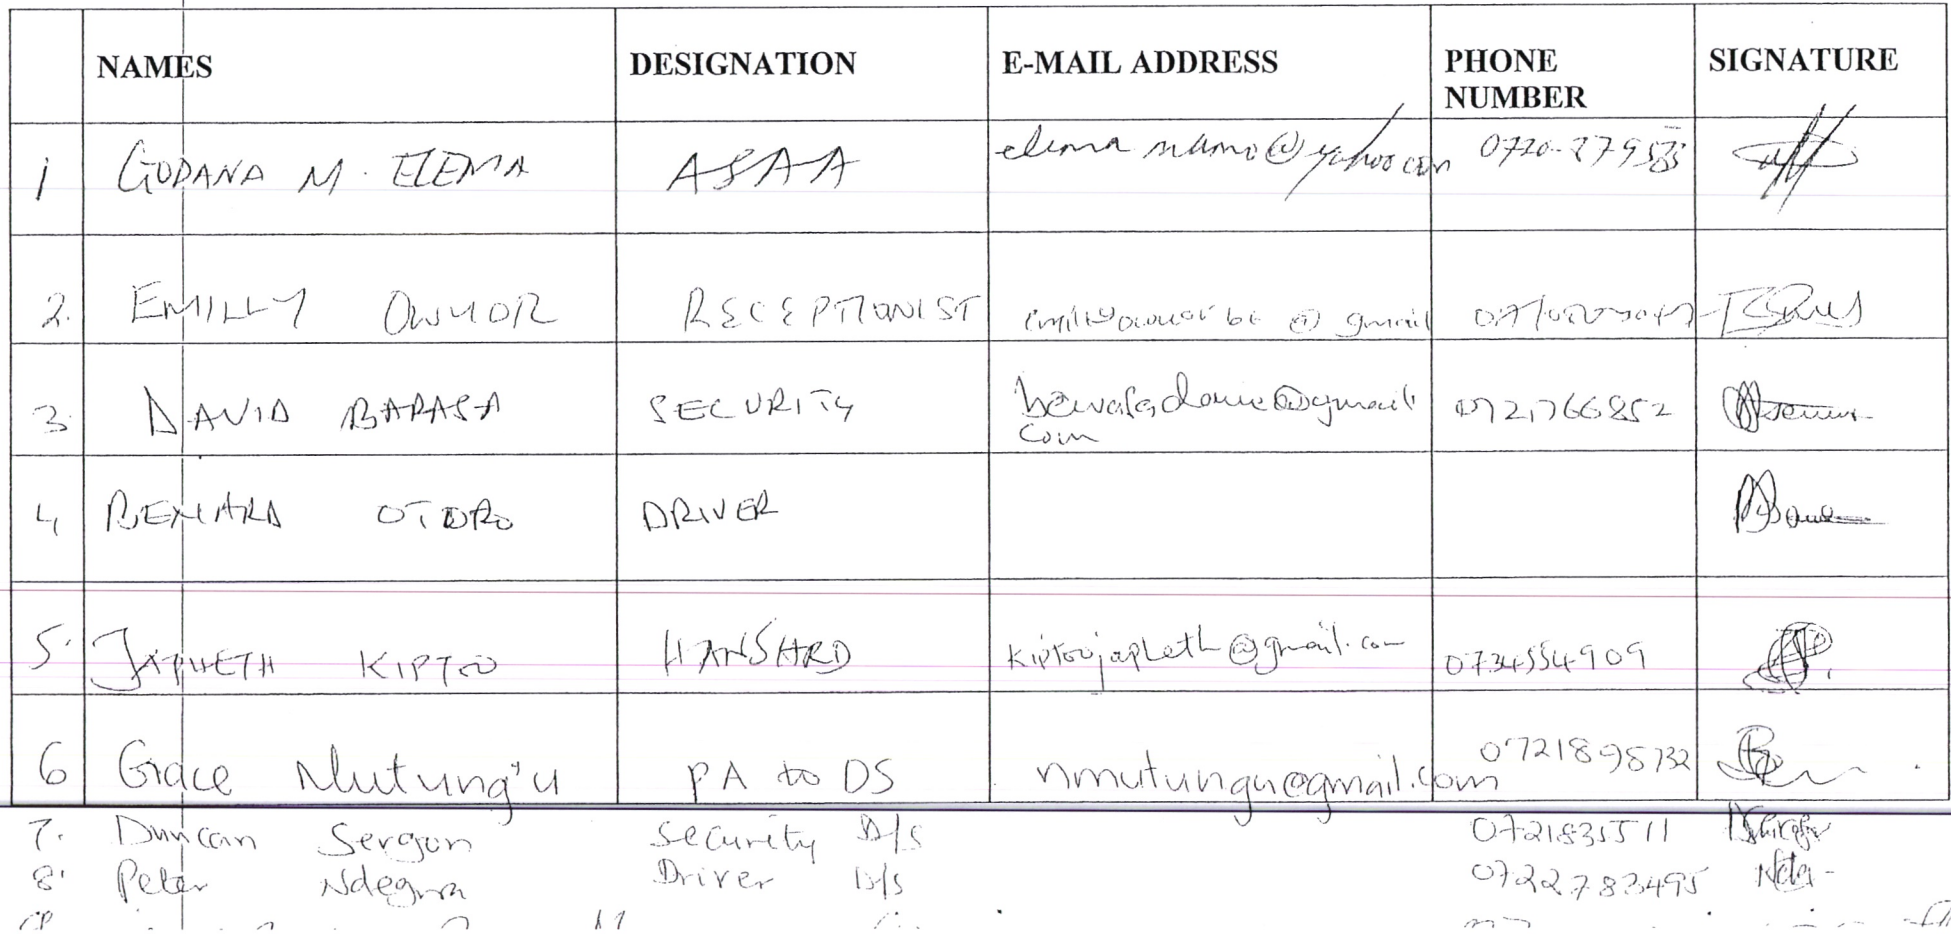 NAMES DESIGNATION E-MAIL ADDRESS PHONE NUMBER SIGNATURE
1 GODANA M. ELEMA ASAA elema mamo@yahoo com
2. EMILLY OWUOR RECEPTIONIST @ gmail
3 DAVID BARASA SECURITY com 0721766852
4 BENARD OTORO DRIVER
5. JAPHETH KIPTOO HANSARD kiptoojapheth@gmail.com 0734554909
6 Grace Mutung'u PA to DS nmutungu@gmail.com 0721898732
7. Duncan Sergon Security D/S 0721835511
8. Peter Ndegwa Driver D/S 0722783495